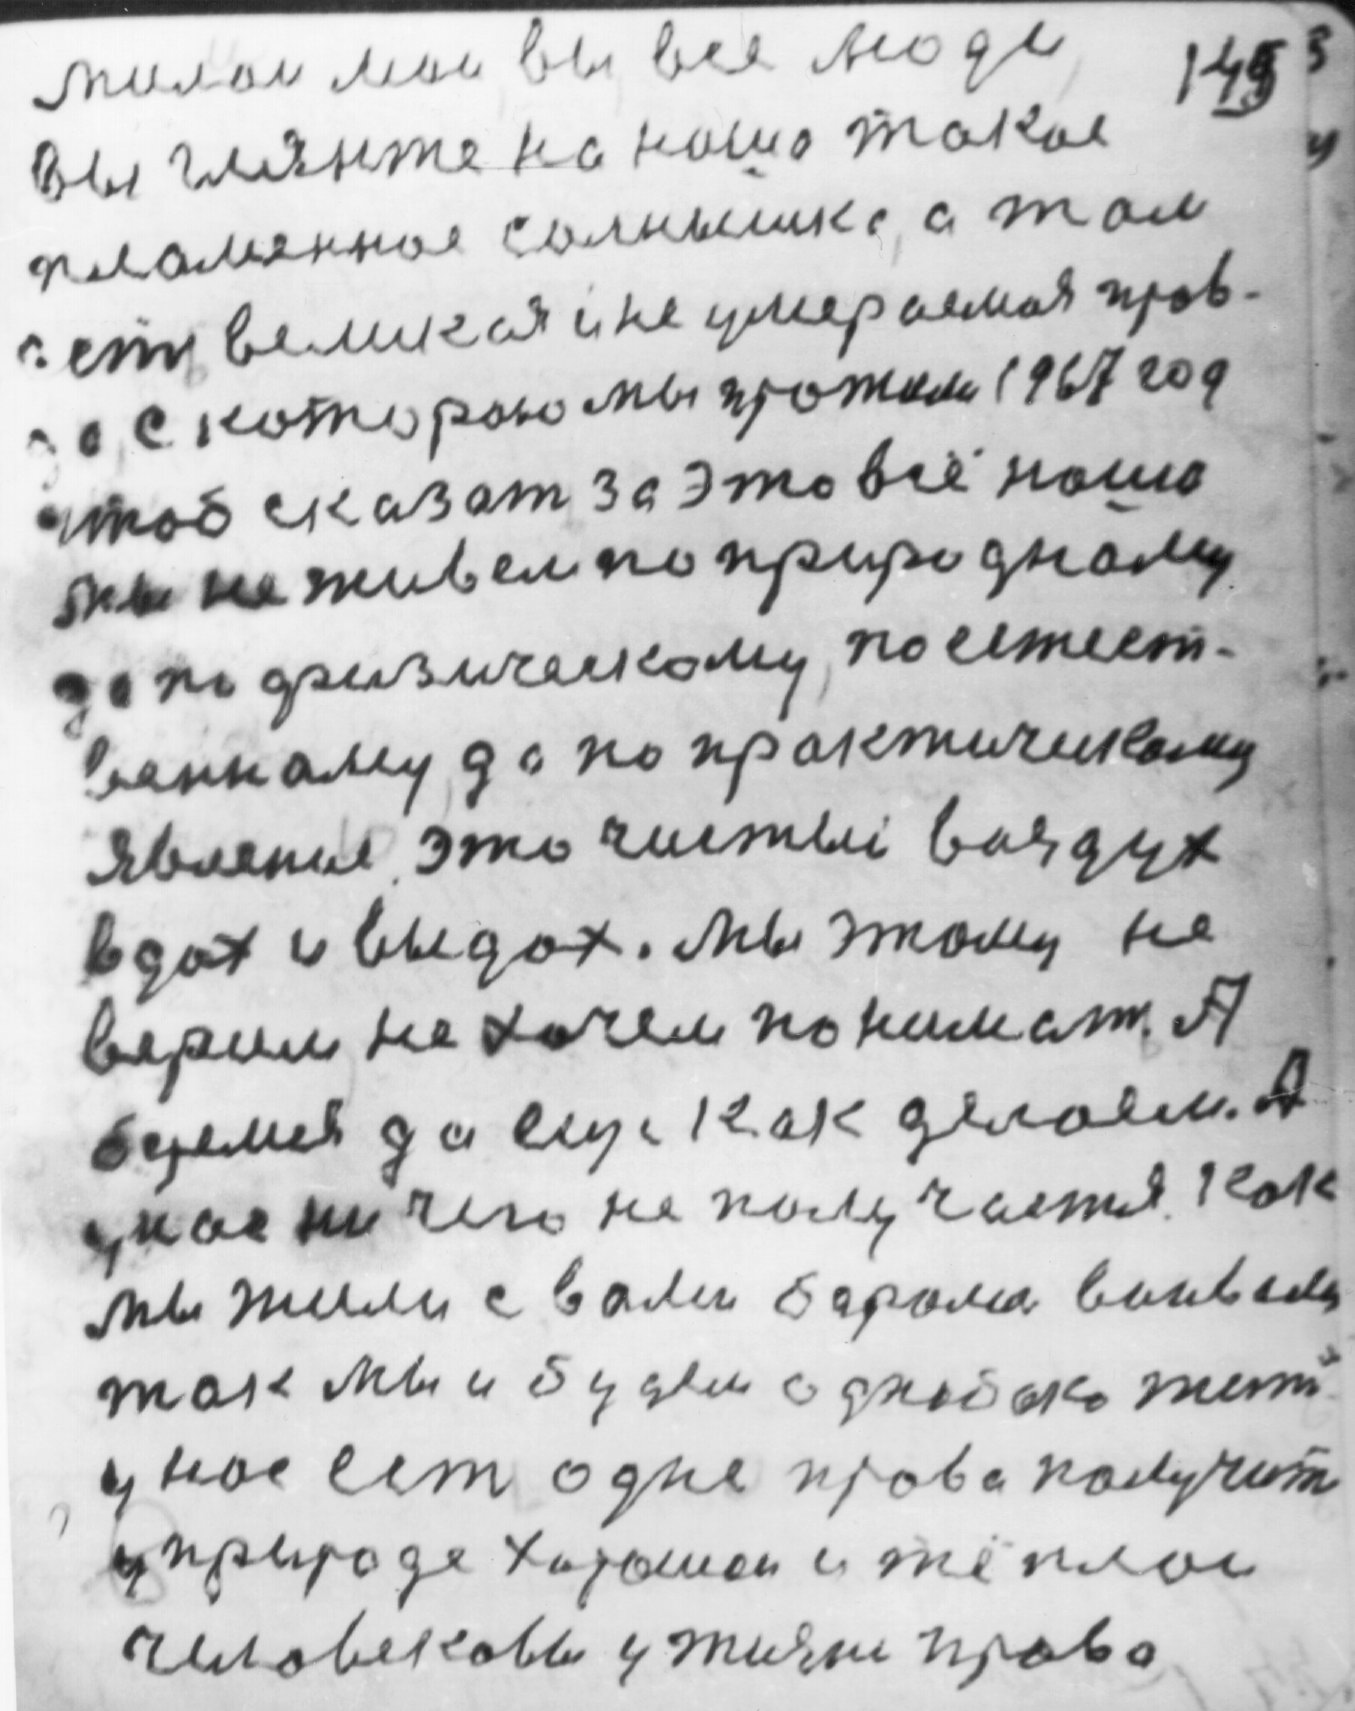 милои мои вы все люди 145
вы гляните на нашо такое
пламенное солнышко, а там
есть великая и не умераемая прав-
да, с которою мы прожили 1967 год
чтоб сказат за это всё нашо
мы не живем по природному
да по физическому, по естест-
венному, да по практическому
явление, это чистыи воздух
вдох и выдох. мы этому не
верим не хочем понимат. А
беремся да ещё как делаем. А
у нас ни чего не получается. Как
мы жили с вами
так мы и будем однобоко жить
у нас ест одне права получит
у природе хорошои и тёплои
человековы у жизни права